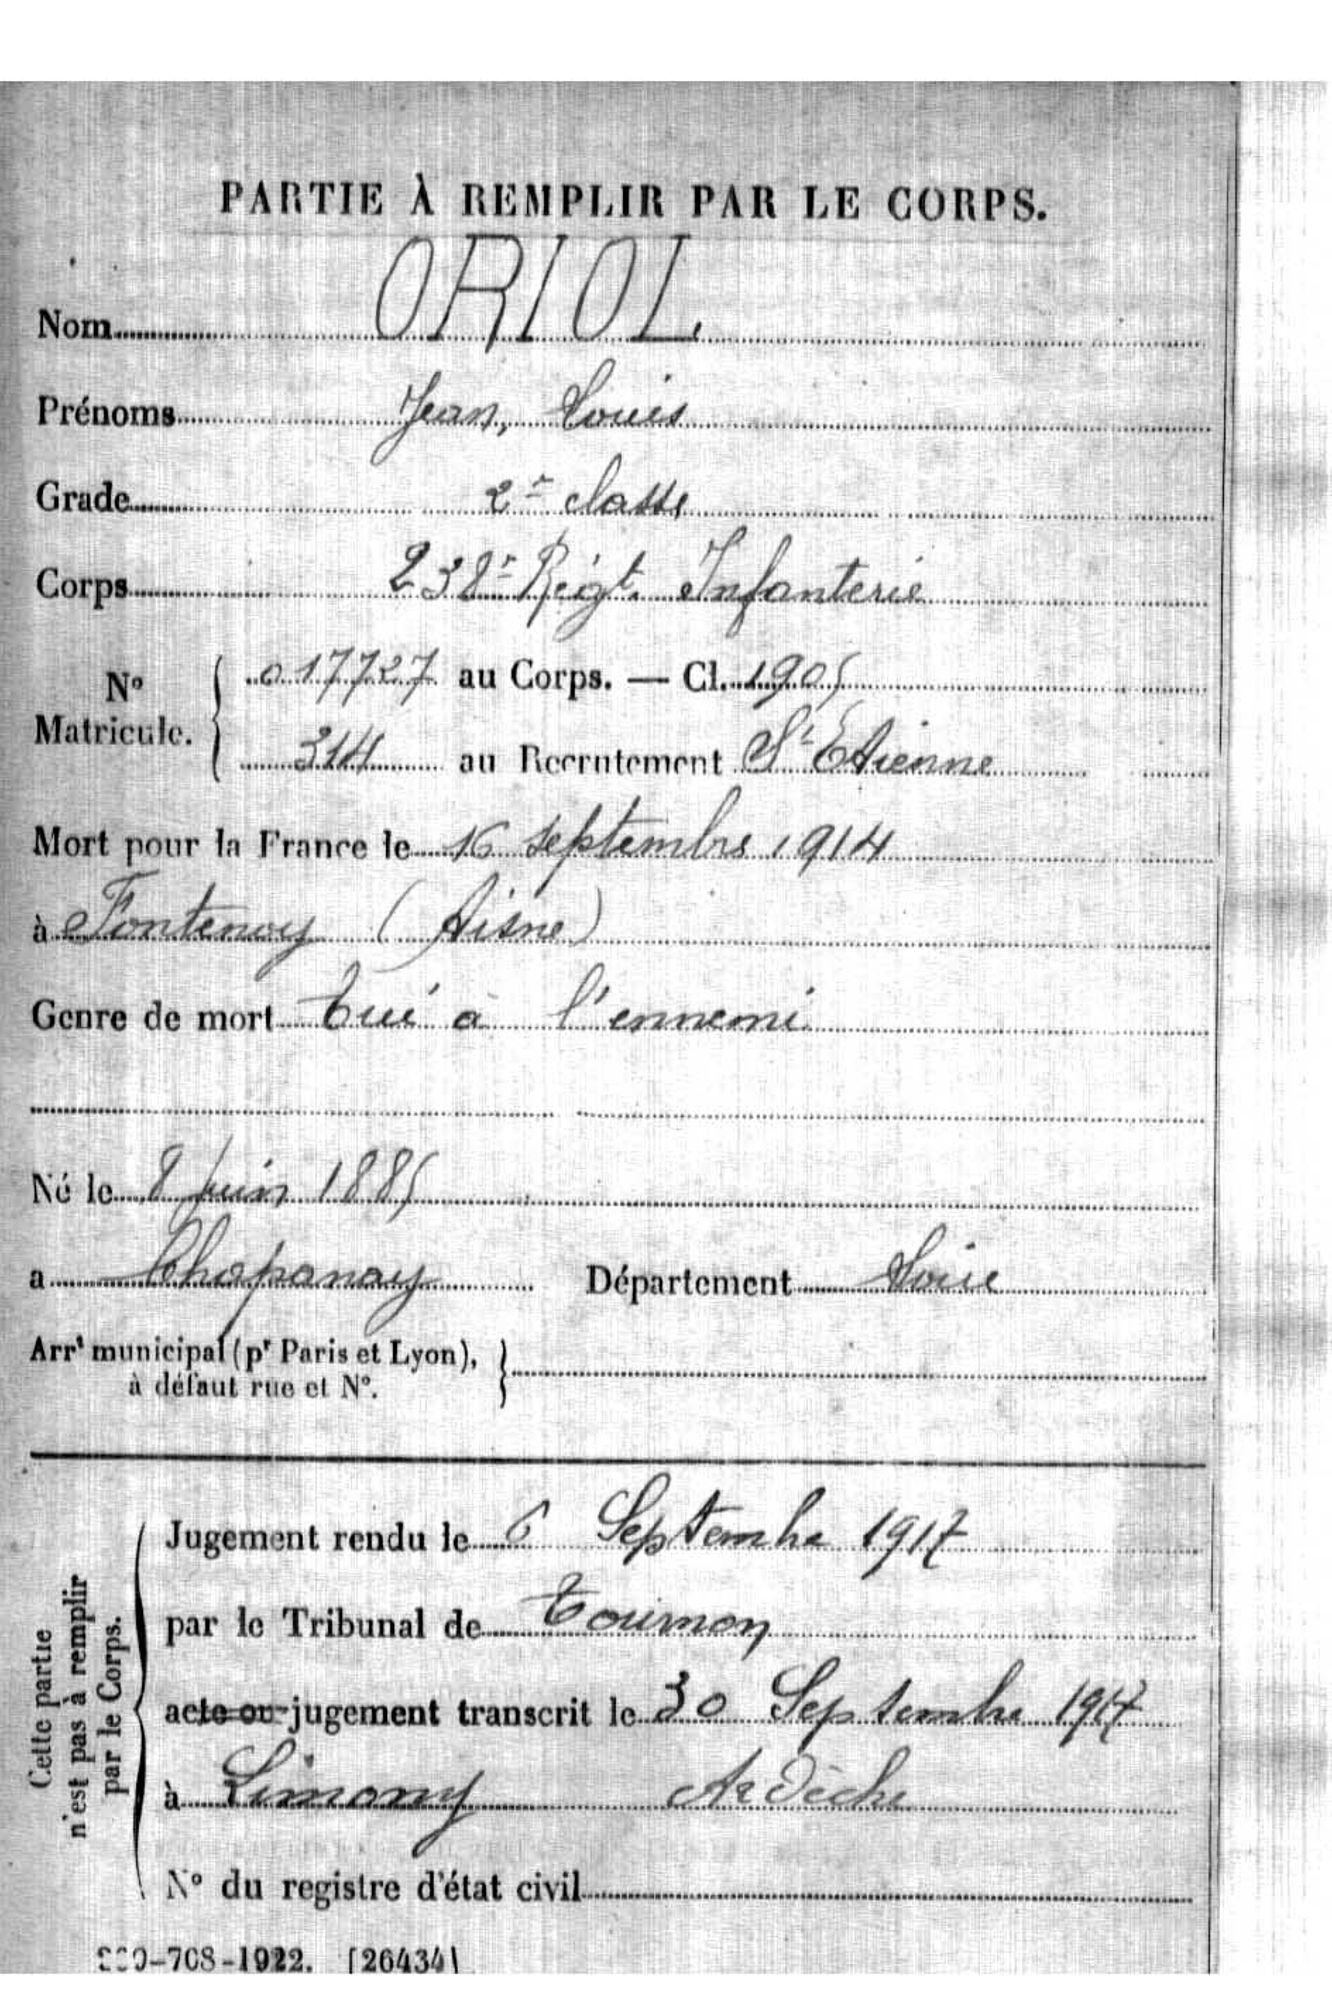 PARTIE À REMPLIR PAR LE CORPS.
Nom ORIOL
Prénoms Jean, Louis
Grade 2e classe
Corps 238e Régt. Infanterie
N° Matricule. 017727 au Corps. — Cl. 1905
314 au Recrutement St Etienne
Mort pour la France le 16 septembre 1914
à Fontenoy (Aisne)
Genre de mort tué à l'ennemi
Né le 8 Juin 1885
a Chapanay Département Loire
Arrt municipal (pr Paris et Lyon),
à défaut rue et N°.
Cette partie
n'est pas à remplir
par le Corps.
Jugement rendu le 6 Septembre 1917
par le Tribunal de Tournon
acte ou jugement transcrit le 30 Septembre 1917
à Limony Ardèche
N° du registre d'état civil
-708-1922. [26434]